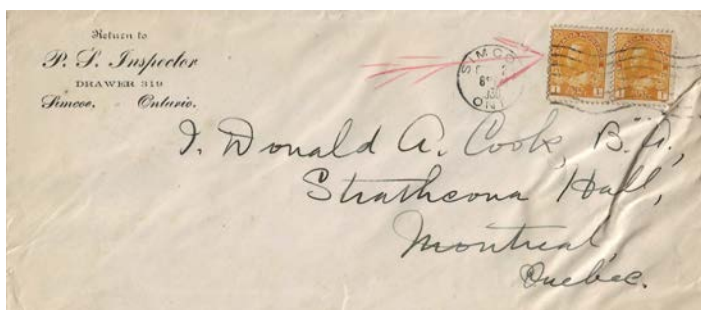 Return to
P. S. Inspector
DRAWER 319
Simcoe, Ontario.
SIMCO
ONT
1 1
I. Donald A. Cook, B.A.,
Strathcona Hall,
Montreal
Quebec.